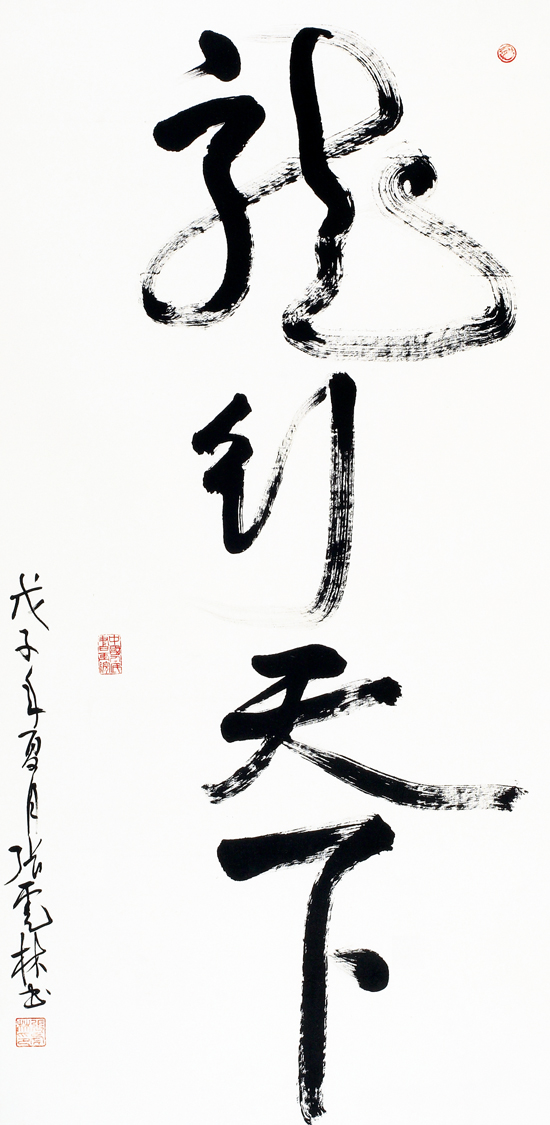 龍行天下
戊子年夏月张雲林书